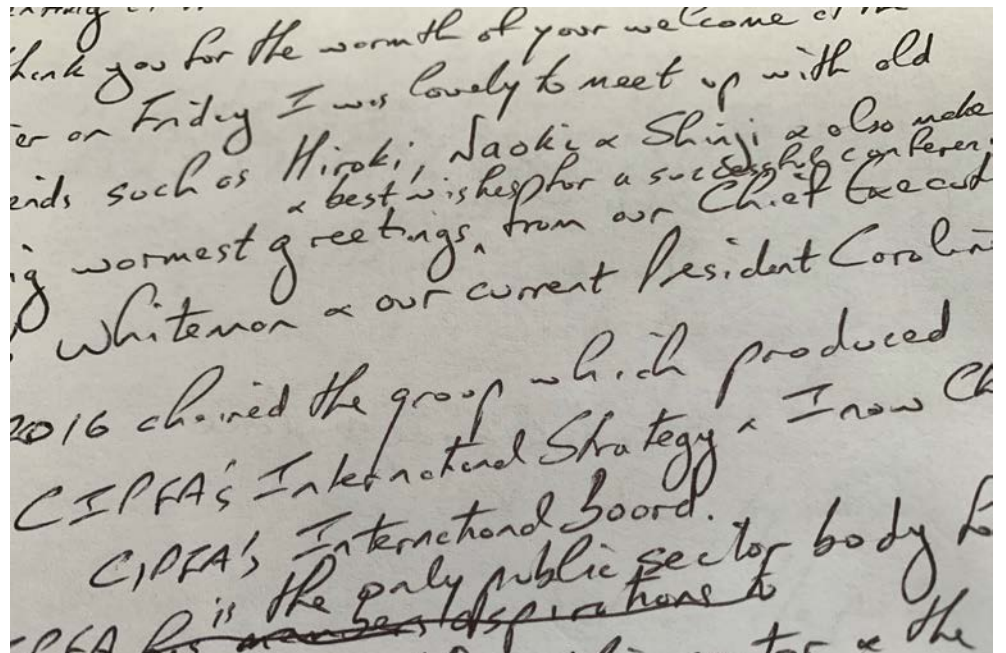 thank you for the warmth of your welcome at the
er on Friday I was lovely to meet up with old
ends such as Hiroki, Naoki & Shinji & also make
& best wishes for a successful conferen
ig warmest greetings, from our Chief Execut
Whiteman & our current President Carolin
2016 chaired the group which produced
CIPFA's International Strategy & I now Ch
CIPFA's International Board.
is the only public sector body fo
CIPFA has members aspirations to
tor & the